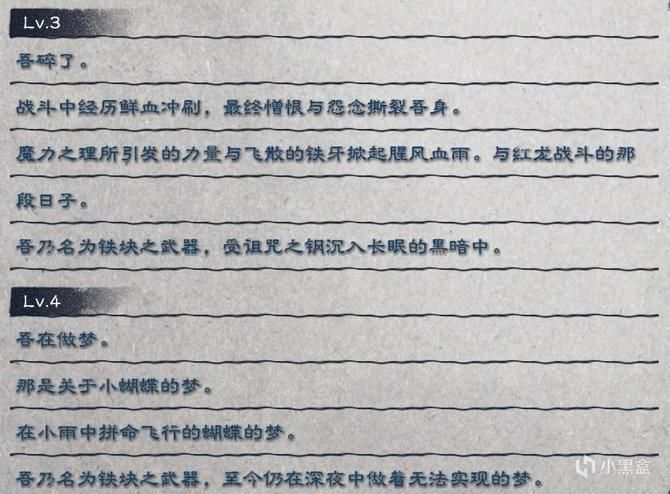 Lv.3
吾碎了。
战斗中经历鲜血冲刷，最终憎恨与怨念撕裂吾身。
魔力之理所引发的力量与飞散的铁牙掀起腥风血雨。与红龙战斗的那
段日子。
吾乃名为铁块之武器，受诅咒之钢沉入长眠的黑暗中。
Lv.4
吾在做梦。
那是关于小蝴蝶的梦。
在小雨中拼命飞行的蝴蝶的梦。
吾乃名为铁块之武器，至今仍在深夜中做着无法实现的梦。
小黑盒